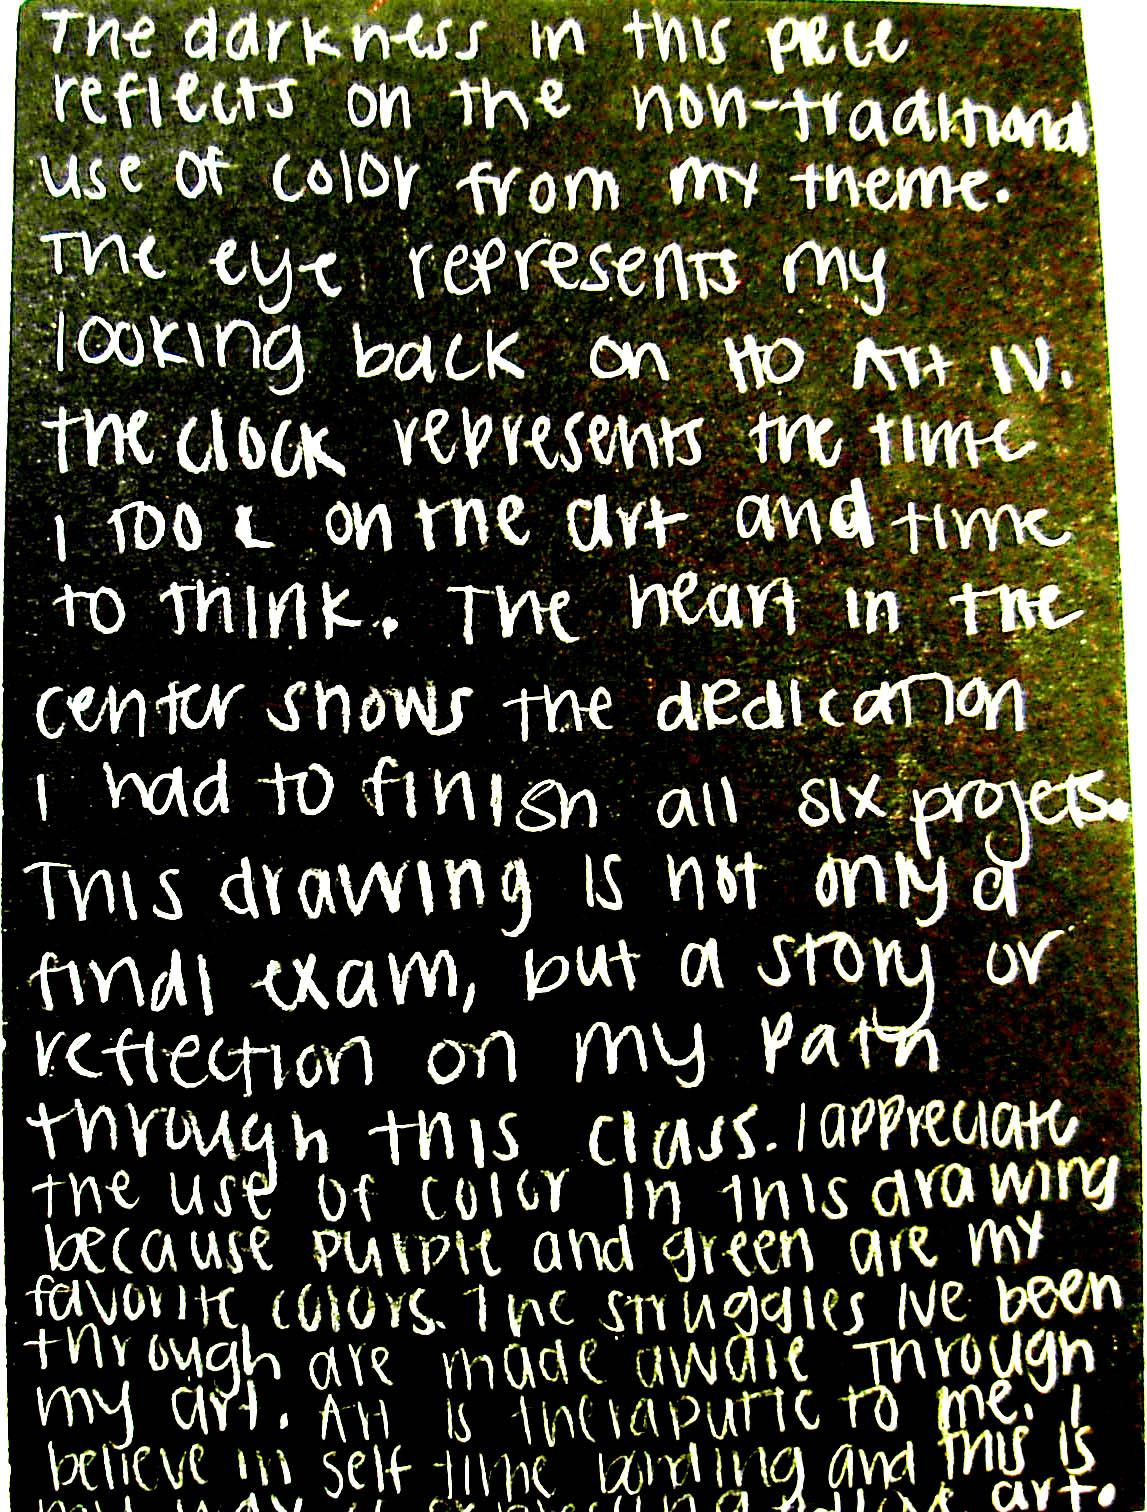 The darkness in this piece
reflects on the non-traditional
use of color from my theme.
The eye represents my
looking back on HO Art IV.
The clock represents the time
I took on the art and time
to think. The heart in the
center shows the dedication
I had to finish all six projets.
This drawing is not only a
final exam, but a story or
reflection on my path
through this class. I appreciate
the use of color in this drawing
because purple and green are my
favorite colors. The struggles Ive been
through are made awale through
my art. Art is theraputic to me. I
believe in self time bonding and this is
my way of expressing art.